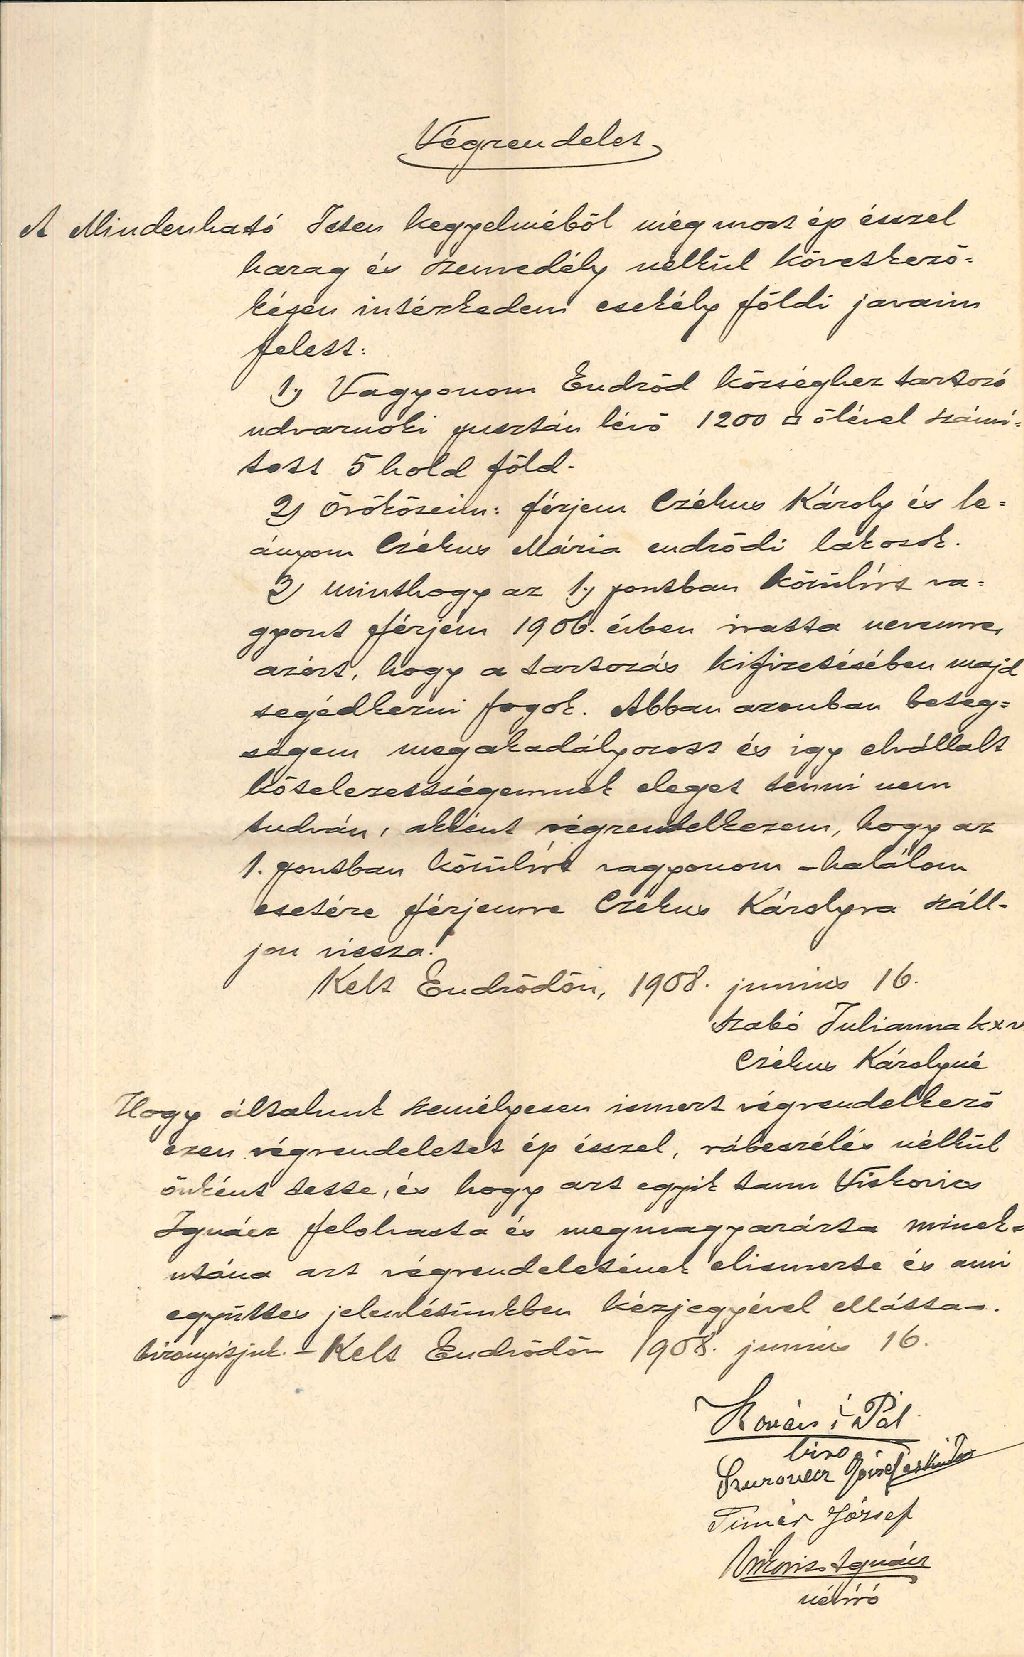 Végrendelet
A Mindenható Isten kegyelméből még most ép ésszel
harag és szenvedély nélkül következő-
képen intézkedem csekély földi javaim
felett:
1.) Vagyonom Endrőd községhez tartozó
udvarnoki pusztán lévő 1200 □ ölével számí-
tott 5 hold föld.
2) Örököseim: férjem Czékus Károly és le-
ányom Czékus Mária endrődi lakosok.
3) minthogy az 1.) pontban körülírt va-
gyont férjem 1906. évben iratta nevemre,
azért, hogy a tartozás kifizetésében majd
segédkezni fogok. Abban azonban beteg-
ségem megakadályozott és így elvállalt
kötelezettségemnek eleget tenni nem
tudván, akként végrendelkezem, hogy az
1. pontban körülírt vagyonom – halálom
esetére férjemre Czékus Károlyra száll-
jon vissza.
Kelt Endrődön, 1908. junius 16.
Szabó Julianna kxv
Czékus Károlyné
Hogy általunk személyesen ismert végrendelkező
ezen végrendeletet ép ésszel, rábeszélés nélkül
önként tette, és hogy azt egyik tanu Viskovics
Ignácz felolvasta és megmagyarázta minek-
utána azt végrendeletének elismerte és ami
együttes jelenlétünkben kézjegyével ellátta –.
bizonyítjuk. – Kelt Endrődön 1908. junius 16.
Kovács i Pál
biro
Szurovecz József esküdt
Timár József
Viskovics Ignácz
névíró